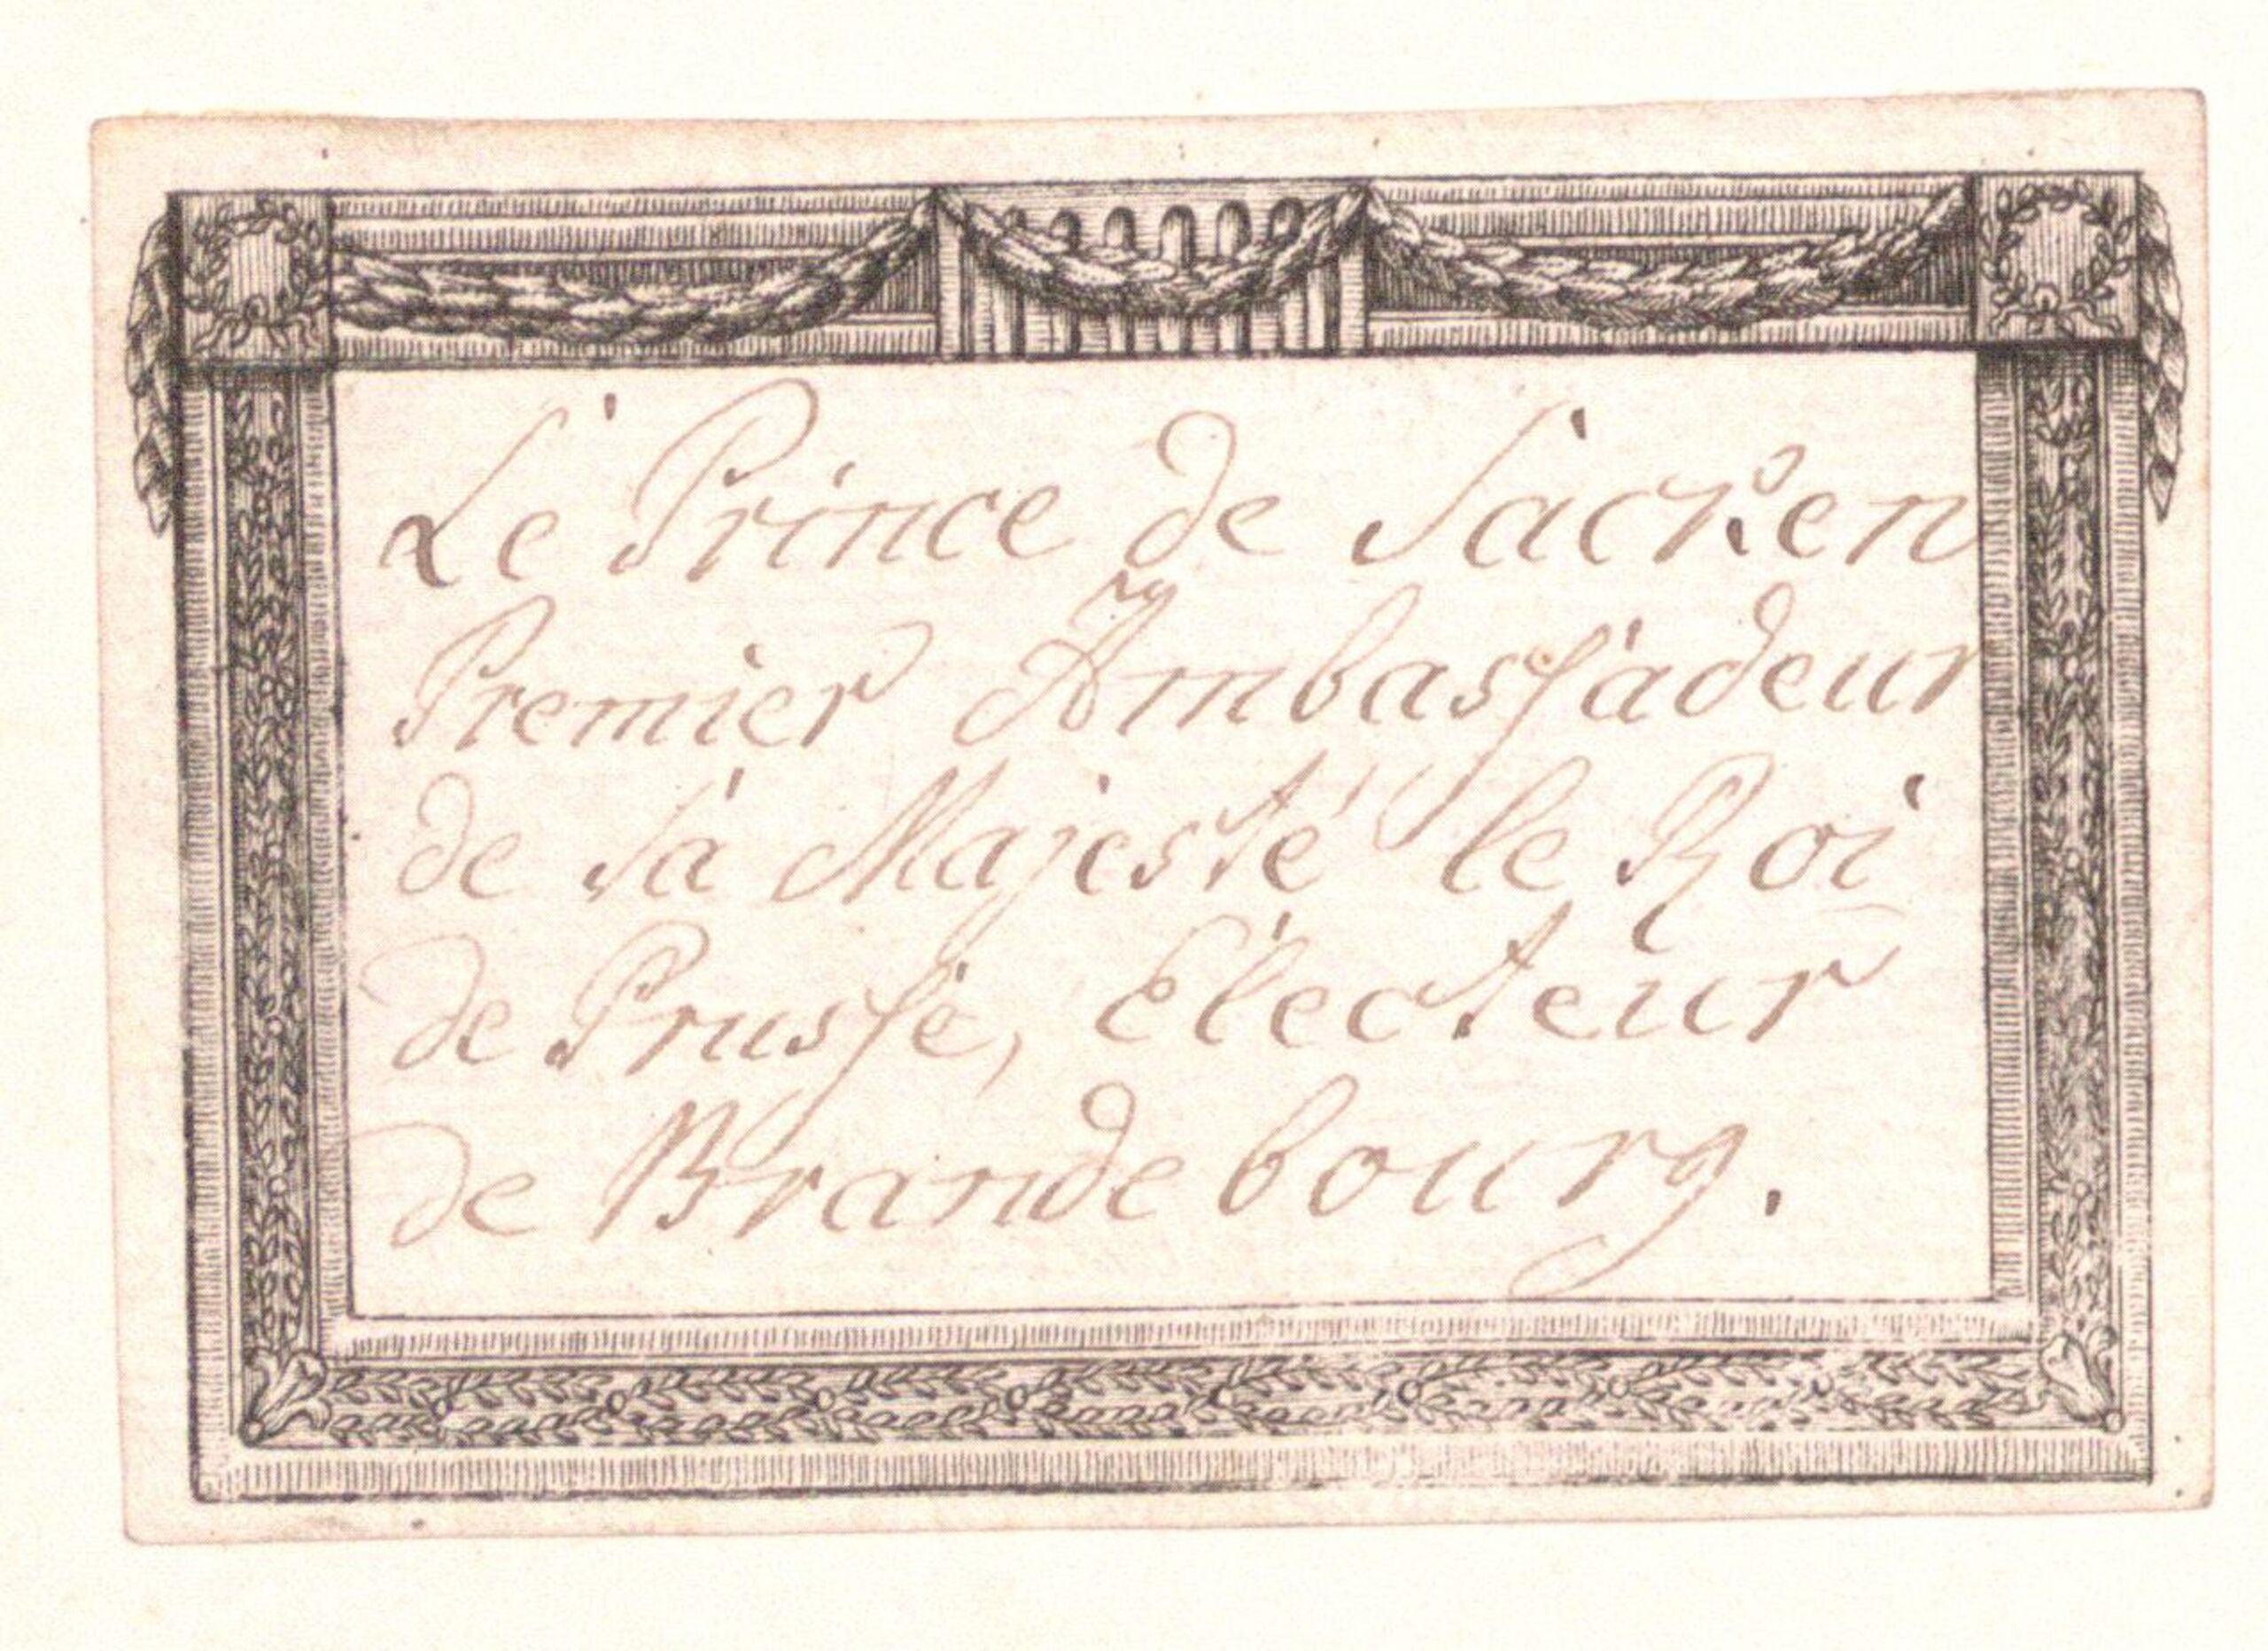 Le Prince de Sacken
Premier Ambassadeur
de sa Majesté le Roi
de Prusse, Electeur
de Brandebourg.